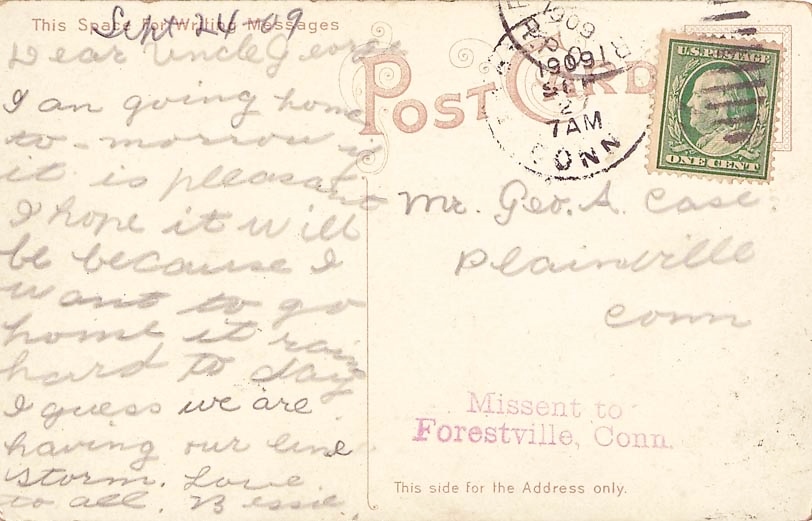 This Space For Writing Messages
Sept 24 09
Dear Uncle George
I an going home
to-morrow if
it is pleasant
I hope it will
be because I
want to go
home it rain
hard to day
I guess we are
having our line
storm. Love
to all. Bessie.
POST CARD
1909
7AM
CONN
U.S. POSTAGE
ONE CENT
Mr. Geo. A. Case.
Plainville
Conn
Missent to
Forestville, Conn.
This side for the Address only.